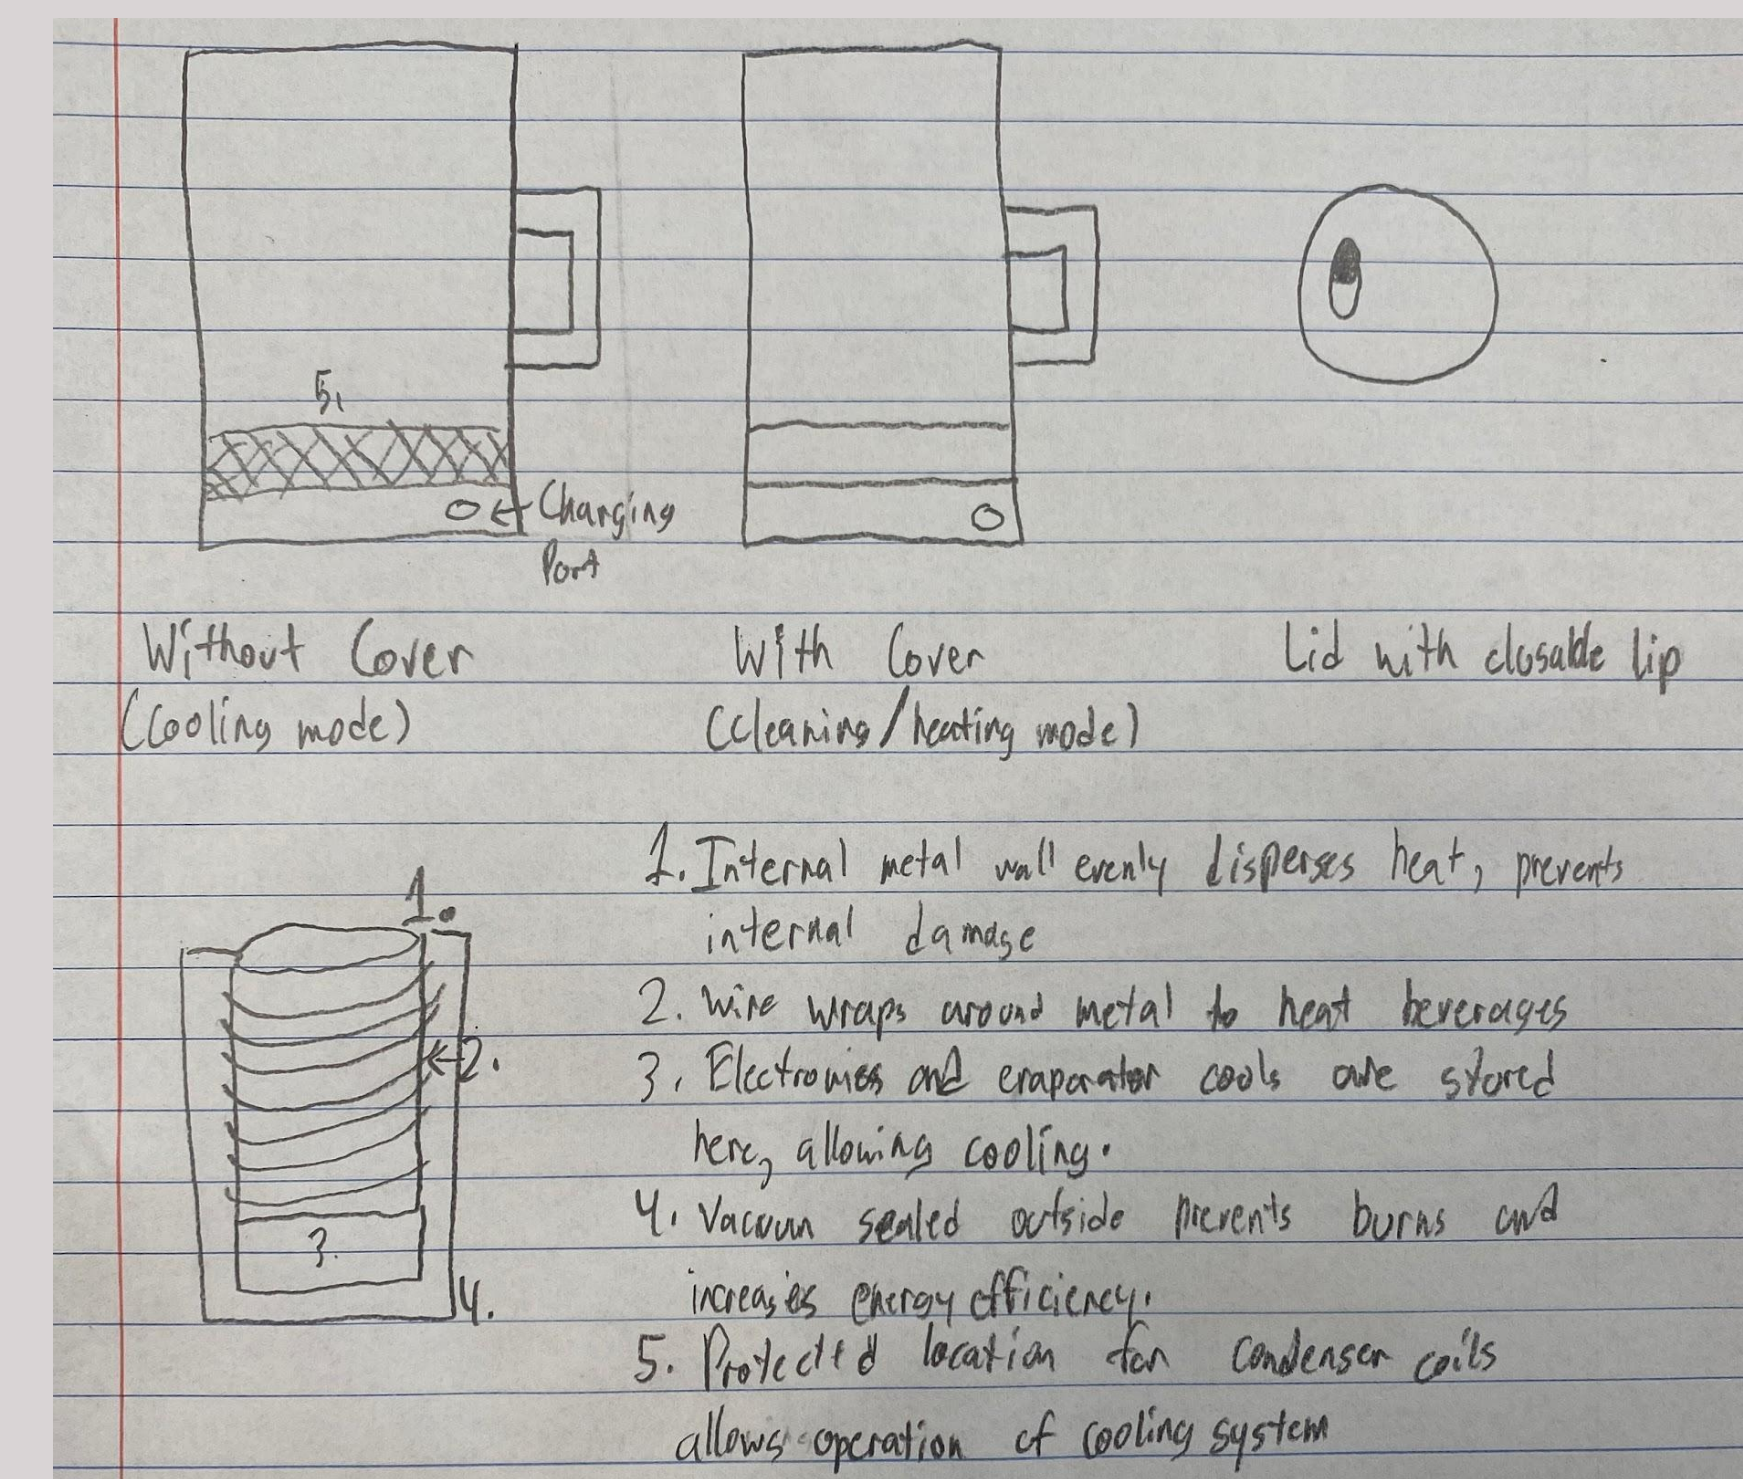 5.
Charging
Port
Without Cover
(Cooling mode)
With Cover
(Cleaning/heating mode)
Lid with closable lip
1.
2.
3.
4.
1. Internal metal wall evenly disperses heat, prevents
internal damage
2. Wire wraps around metal to heat beverages
3. Electronics and evaporator cools are stored
here, allowing cooling.
4. Vacuum sealed outside prevents burns and
increases energy efficiency.
5. Protected location for condenser coils
allows operation of cooling system